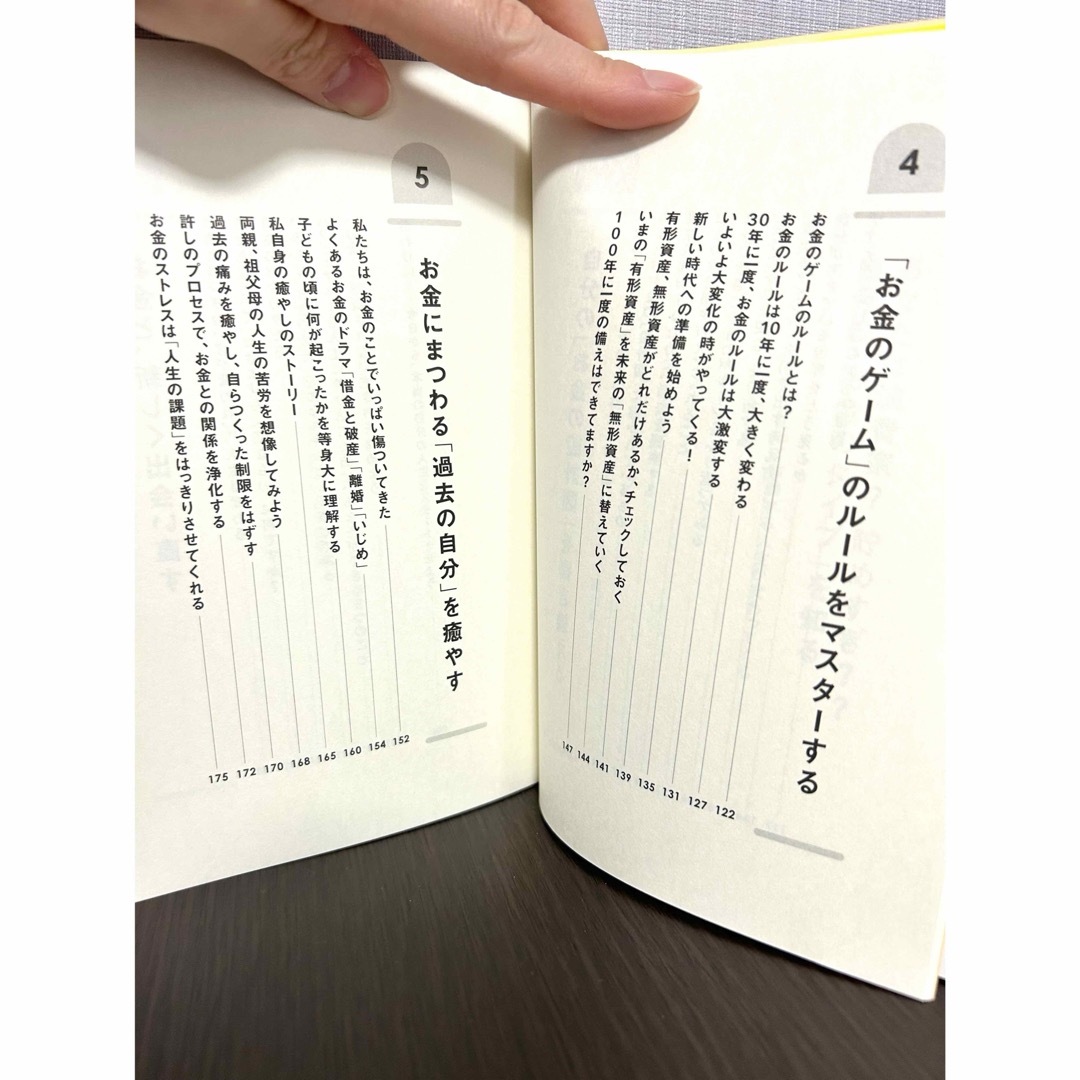 4
「お金のゲーム」のルールをマスターする
お金のゲームのルールとは? 122
お金のルールは10年に一度、大きく変わる 127
30年に一度、お金のルールは大激変する 131
いよいよ大変化の時がやってくる! 135
新しい時代への準備を始めよう 139
有形資産、無形資産がどれだけあるか、チェックしておく 141
いまの「有形資産」を未来の「無形資産」に替えていく 144
100年に一度の備えはできてますか? 147
5
お金にまつわる「過去の自分」を癒やす
私たちは、お金のことでいっぱい傷ついてきた 152
よくあるお金のドラマ「借金と破産」「離婚」「いじめ」 154
子どもの頃に何が起こったかを等身大に理解する 160
私自身の癒やしのストーリー 165
両親、祖父母の人生の苦労を想像してみよう 168
過去の痛みを癒やし、自らつくった制限をはずす 170
許しのプロセスで、お金との関係を浄化する 172
お金のストレスは「人生の課題」をはっきりさせてくれる 175